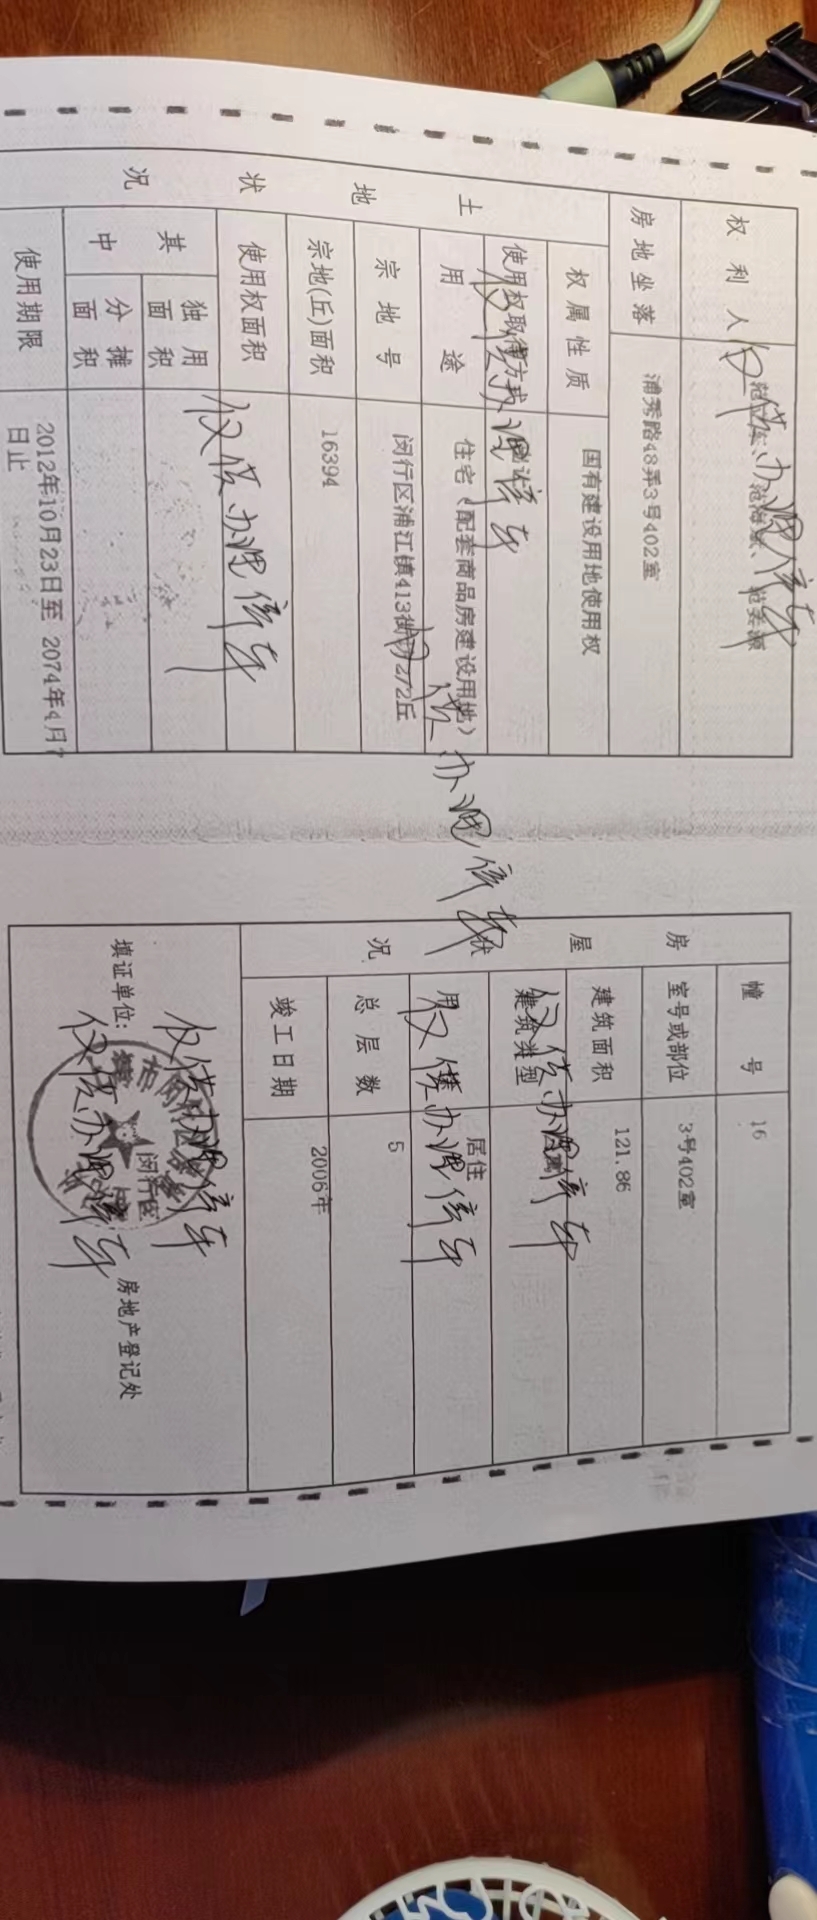 权利人
仅供办理停车
房地坐落 浦秀路48弄3号402室
土地状况
权属性质 国有建设用地使用权
使用权取得方式
仅供办理停车
用途 住宅（配套商品房建设用地）
宗地号 闵行区浦江镇413街坊2/2丘
仅供办理停车
宗地(丘)面积 16394
使用权面积
仅供办理停车
其中
独用面积
分摊面积
使用期限 2012年10月23日至 2074年4月?
日止
房屋状况
幢号 16
室号或部位 3号402室
建筑面积 121.86
建筑类型
仅供办理停车
用 居住
仅供办理停车
总层数 5
竣工日期 2006年
填证单位：
仅供办理停车
仅供办理停车
闵行区
房地产登记处